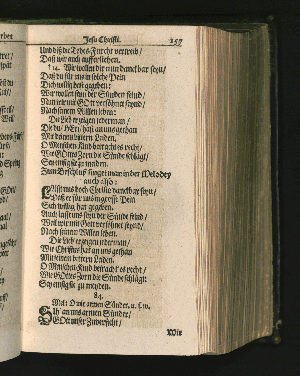 Jesu Christi. 257
Und diß die Todes-Furcht vertreib/
Daß wir auch aufferstehen.
14. Wir wollen dir nun danckbar seyn/
Daß du für uns in solche Pein
Dich willig hast gegeben:
Wir wollen seyn der Sünden feind/
Nun wir mit Gott versöhnet seynd/
Nach seinem Willen leben:
Die Lieb erzeigen jederman/
Die du/ HErr/ hast an uns gethan
Mit deinem bittern Leiden.
O Menschen-Kind betracht es recht/
Wie GOttes Zorn die Sünde schlägt/
Sey emsig sie zu meiden.
Zum Beschluß singet man in der Melodey
auch also:
Laßt uns doch Christo danckbar seyn/
Daß er für uns in grosse Pein
Sich willig hat gegeben.
Auch last uns seyn der Sünde feind/
Weil wir mit Gott versöhnet seynd/
Nach seinem Willen leben.
Die Lieb erzeigen jederman/
Wie Christus hat an uns gethan
Mit seinem bittern Leiden.
O Menschen-Kind betracht es recht/
Wie GOttes Zorn die Sünde schlägt:
Sey emsig sie zu meyden.
84.
Mel: O wir armen Sünder, u. s. w.
Sih' an uns armen Sünder/
GOtt unser Zuversicht/
Wir